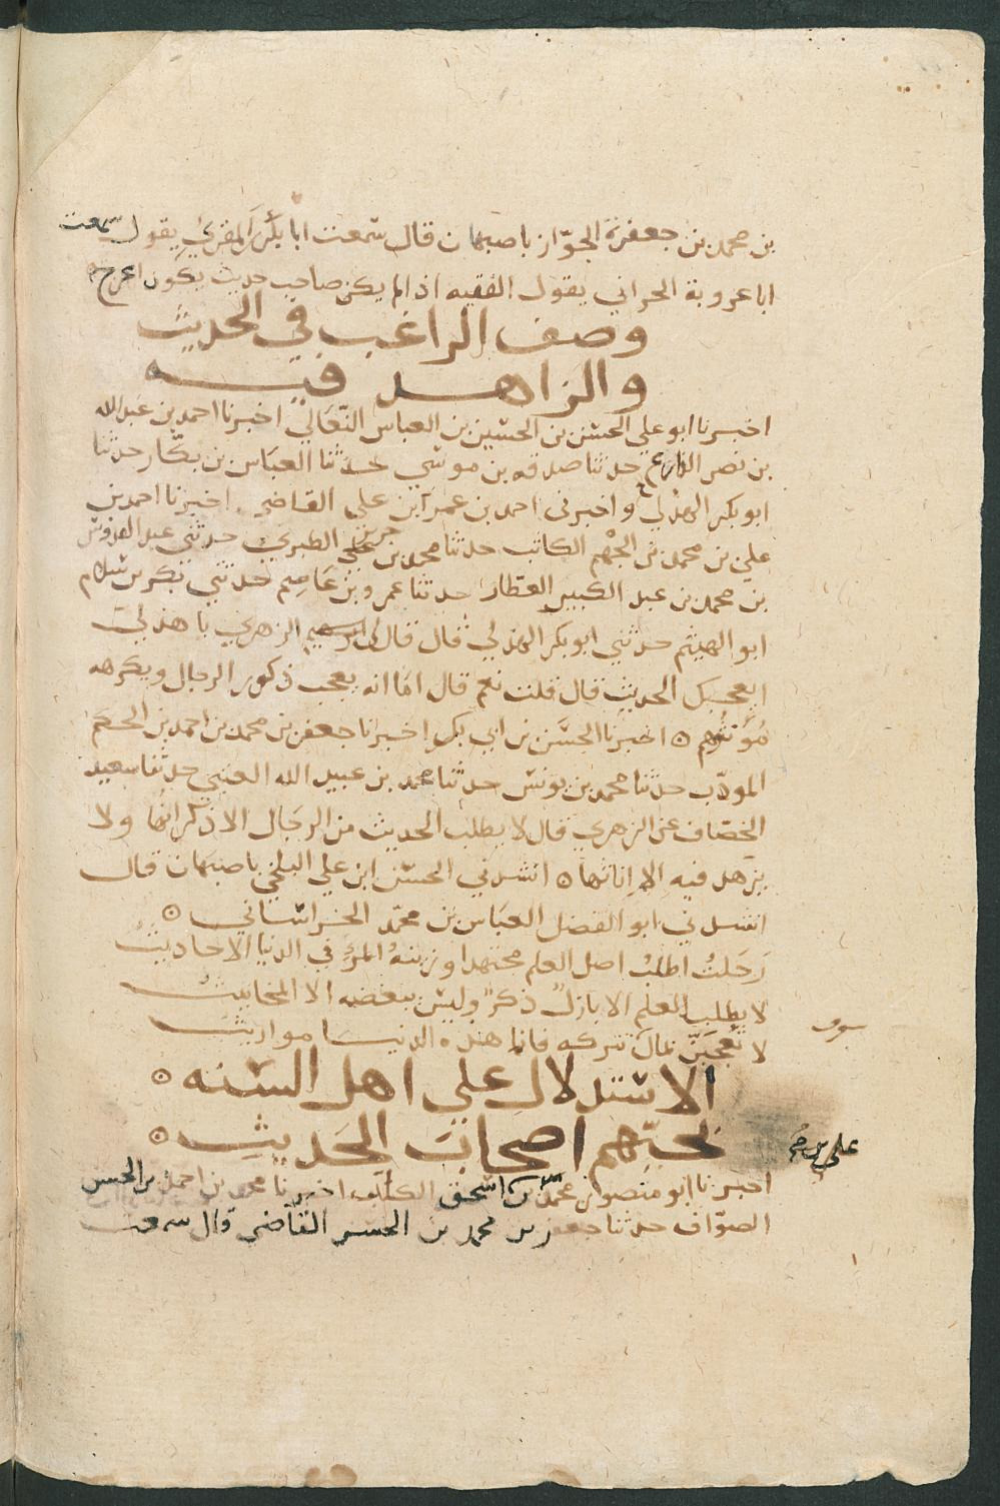 بن محمد بن جعفر الجوّاز باصبهان قال سمعت ابا بكر المقري يقول سمعت
ابا عروبة الحراني يقول الفقيه اذا لم يكن صاحب حديث يكون اعرج
وصف الراغب في الحديث
والزاهد فيه
اخبرنا ابو علي الحسن بن الحسين بن العباس النّعالي اخبرنا احمد بن عبد الله
بن نصر الذارع حدثنا صدقه بن موسي حدثنا العبّاس بن بكّار حدثنا
ابو بكر الهذلي ح واخبرني احمد بن عمر ابن علي القاضي اخبرنا احمد بن
علي بن محمد بن الجهم الكاتب حدثنا محمد بن جرير الطبري حدثني عبد القدوس
بن محمد بن عبد الكبير العطار حدثنا عمرو بن عاصم حدثني بكر بن سلام
ابو الهيثم حدثني ابو بكر الهذلي قال قال لي الزهري يا هذلي
ايعجبك الحديث قال قلت نعم قال اما انه يعجب ذكور الرجال ويكرهه
مؤنثوهم ⊙ اخبرنا الحسَن بن ابي بكر اخبرنا جعفر بن محمد بن احمد بن الحكم
المودّب حدثنا محمد بن يونس حدثنا محمد بن عبيد الله العتبي حدثنا سعيد
الخصّاف عن الزهري قال لا يطلب الحديث من الرجال الا ذكرانُها ولا
يزهد فيه الا اِناثها ⊙ انشدني الحسَن ابن علي البلخي باصبهان قال
انشدني ابو الفضل العبّاس بن محمّد الخراساني ⊙
رَحَلتُ اطلبُ اصل العلم مجتهدا وزينةُ المرءِ في الدنيا الاحاديثُ
لا يطلب العلم الا بازلٌ ذكرٌ وليس يبغضه الا المخانيثُ
لا تعجبَنّ بمال سوف تتركه فانما هذه الدنيا مواريثُ
الاستدلال علي اهل السنه ⊙
بحبّهم اصحابَ الحَديثِ ⊙
اخبرنا ابو منصور محمد بن علي بن اسحق الكاتب اخبرنا محمد بن احمد بن الحسن
الصوّاف حدثنا جعفر بن محمد بن الحسن القاضي قال سمعت